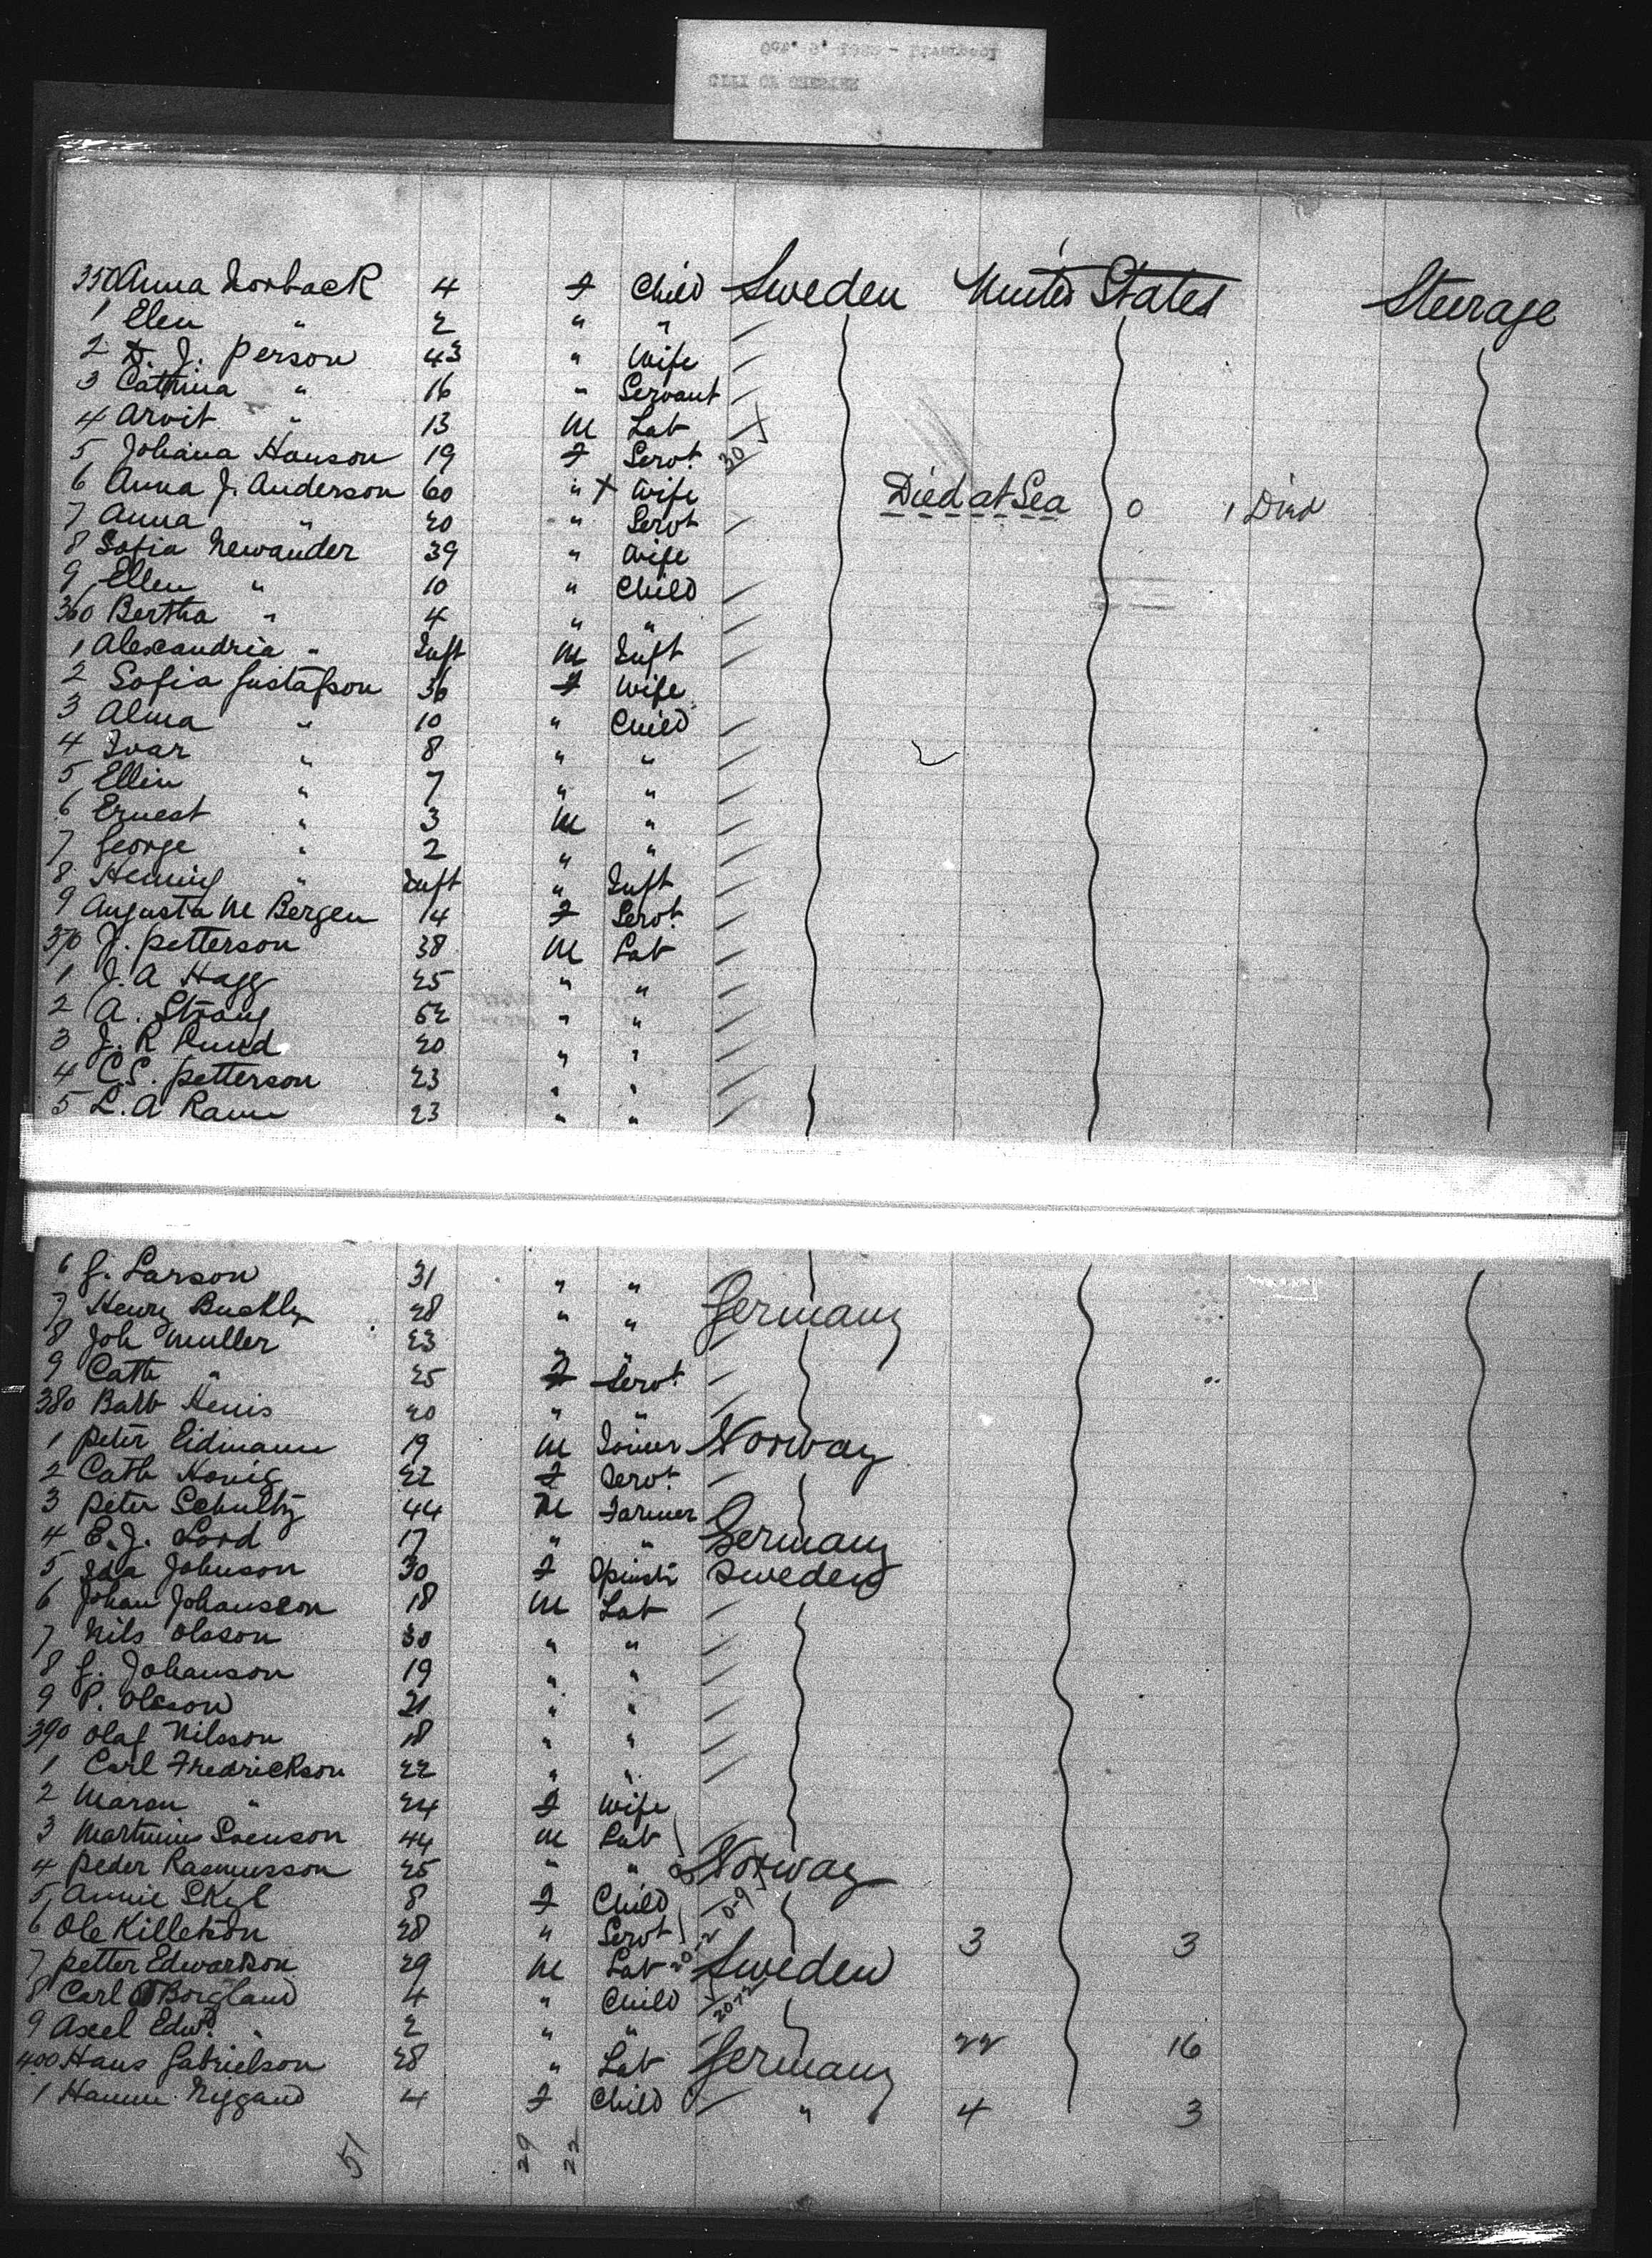 350 Anna Norback 4 F Child Sweden United States Steerage
1 Elen " 2 " "
2 J. Person 43 " Wife
3 Cathrina " 16 " Servant
4 Arvit " 13 M Lab
5 Johana Hanson 19 F Servt 30
6 Anna J. Anderson 60 " X Wife Died at Sea 0 1 Died
7 Anna " 20 " Servt
8 Sofia Newander 39 " Wife
9 Ellen " 10 " Child
360 Bertha " 4 " "
1 Alexandria " Inft M Inft
2 Sofia Gustafson 36 F Wife
3 Alma " 10 " Child
4 Ivar " 8 " "
5 Ellin " 7 " "
6 Ernest " 3 M "
7 George " 2 " "
8 Hening " Inft " Inft
9 Augusta M Bergen 14 F Servt
370 J. Petterson 38 M Lab
1 J. A Hagg 25 " "
2 A. Strang 52 " "
3 J. R 20 " "
4 C.S. Petterson 23 " "
5 L. A 23 " "
6 G. Larson 31 " "
7 Henry 28 " " Germany
8 Joh Muller 23 " "
9 Cath " 25 F Servt
380 Barb 20 " "
1 Peter Eidmann 19 M Joiner Norway
2 Cath Konig 22 F Servt
3 Peter Schultz 44 M Farmer
4 E. J. Lord 17 " " Germany
5 Ida Johnson 30 F Spinstr Sweden
6 Johan Johansson 18 M Lab
7 Nils Olsson 30 " "
8 G. Johanson 19 " "
9 P. Olsson 21 " "
390 Olaf Nilsson 18 " "
1 Carl Fredrickson 22 " "
2 " 24 F Wife
3 Martinius Svenson 44 M Lab
4 Peder Rasmusson 25 " " Norway
5 Annie 8 F Child
6 Ole 28 " Servt 3 3
7 Petter Edwardson 29 M Lab Sweden
8 Carl Borgland 4 " Child
9 Axel Edwd. " 2 " " 22 16
400 Hans Gabrielson 28 " Lab Germany
1 4 F Child " 4 3
51 29 22